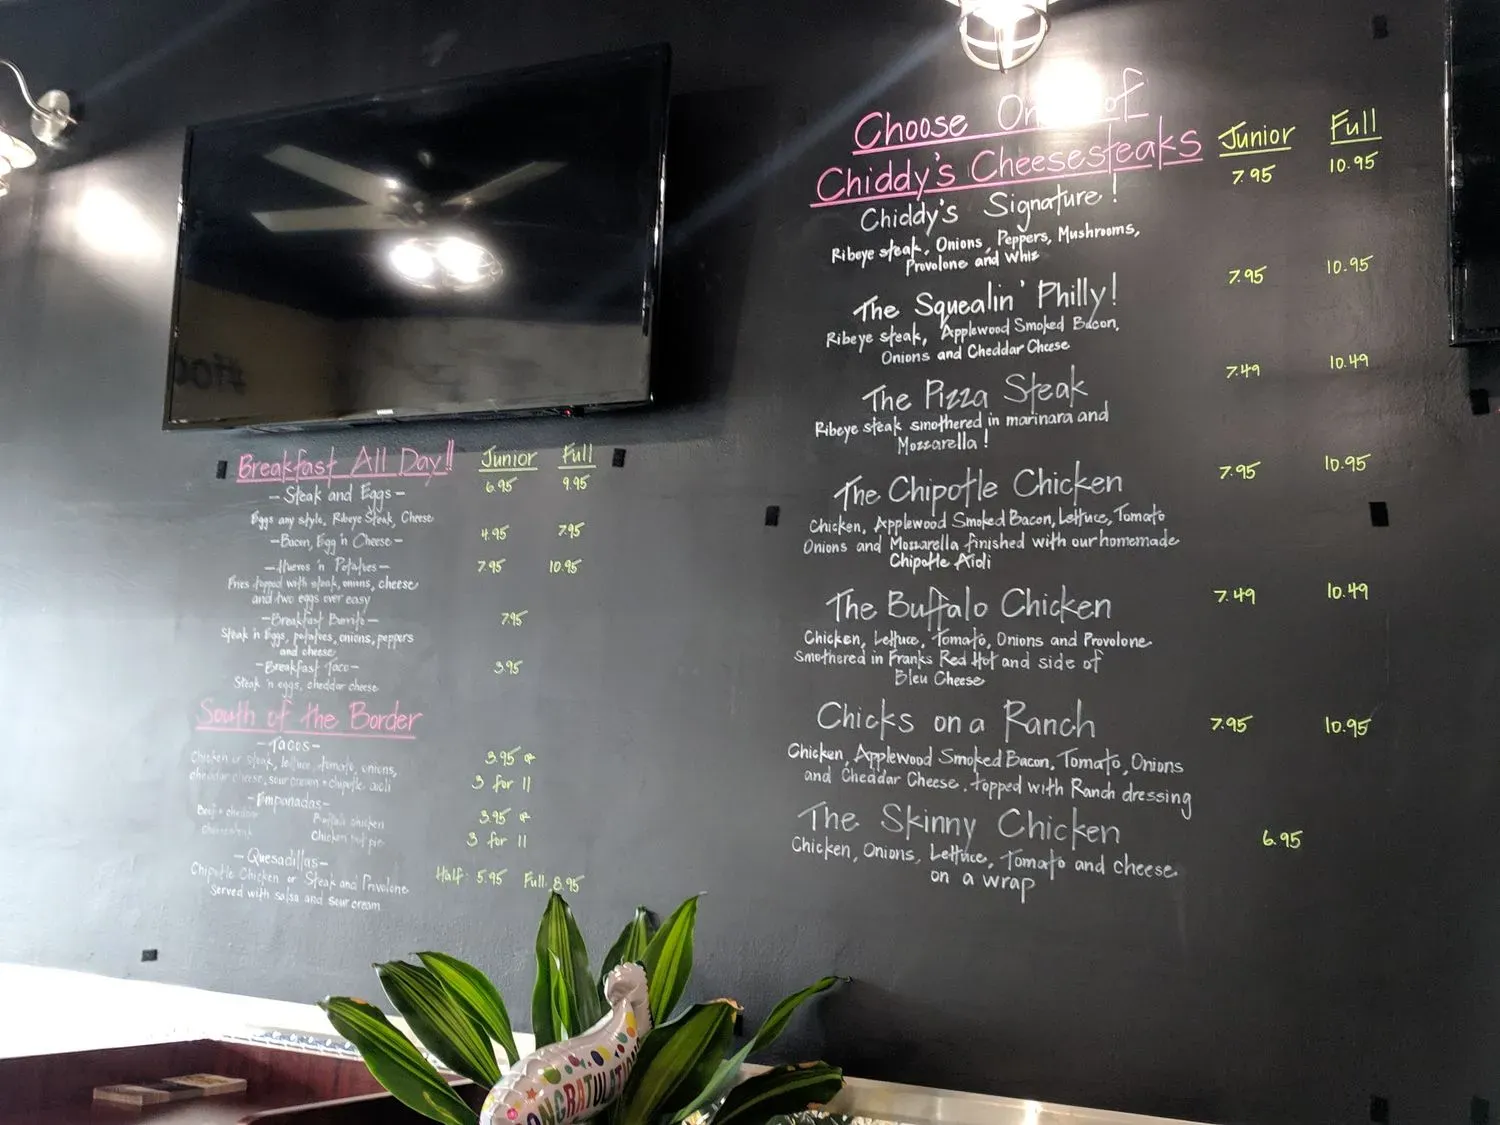 Breakfast All Day!! Junior Full
-Steak and Eggs- 6.95 9.95
Eggs any style, Ribeye Steak, Cheese
-Bacon, Egg 'n Cheese- 4.95 7.95
-Hueros 'n Potatoes- 7.95 10.95
Fries topped with steak, onions, cheese
and two eggs over easy
-Breakfast Burrito- 7.95
Steak 'n Eggs, potatoes, onions, peppers
and cheese
-Breakfast Taco- 3.95
Steak 'n eggs, cheddar cheese
South of the Border
-Tacos-
Chicken or steak, lettuce, tomato, onions, 3.95 or
cheddar cheese, sour cream + chipotle aioli 3 for 11
-Empanadas- 3.95 or
Beef + cheddar Buffalo chicken
cheesesteak Chicken pot pie 3 for 11
-Quesadillas-
Chipotle Chicken or Steak and Provolone Half: 5.95 Full 8.95
Served with salsa and sour cream
Choose One of
Chiddy's Cheesesteaks Junior Full
Chiddy's Signature! 7.95 10.95
Ribeye steak, Onions, Peppers, Mushrooms,
Provolone and Whiz
The Squealin' Philly! 7.95 10.95
Ribeye steak, Applewood Smoked Bacon,
Onions and Cheddar Cheese
The Pizza Steak 7.49 10.49
Ribeye steak smothered in marinara and
Mozzarella!
The Chipotle Chicken 7.95 10.95
Chicken, Applewood Smoked Bacon, Lettuce, Tomato
Onions and Mozzarella finished with our homemade
Chipotle Aioli
The Buffalo Chicken 7.49 10.49
Chicken, Lettuce, Tomato, Onions and Provolone
Smothered in Franks Red Hot and side of
Bleu Cheese
Chicks on a Ranch 7.95 10.95
Chicken, Applewood Smoked Bacon, Tomato, Onions
and Cheddar Cheese. topped with Ranch dressing
The Skinny Chicken 6.95
Chicken, Onions, Lettuce, Tomato and cheese
on a wrap